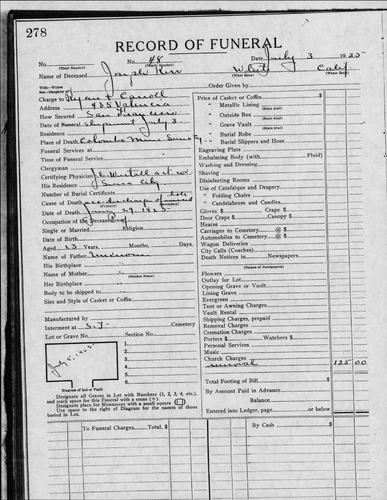 278
RECORD OF FUNERAL
No. No. 48 Date July 3 1925
(Total Number) (Yearly Number)
Name of Deceased Joseph Kerr White Calif.
(What Race) (Where Born)
Wife-Widow of
Son-Daughter of
Order Given by
Charge to Ryan & Carroll
Address 485 Valencia
How Secured San Francisco
Date of Funeral shipment July 3
Residence
Place of Death Colombo Mine Sierra
Funeral Services at
Time of Funeral Service
Clergyman
Certifying Physician
His Residence Sierra City
Number of Burial Certificate
Cause of Death
(Primary) (Secondary)
Date of Death 1925
Occupation of the Deceased
Single or Married Religion
Date of Birth
Aged Years, Months, Days.
Name of Father Unknown
His Birthplace "
Name of Mother "
(Maiden Name)
Her Birthplace "
Body to be shipped to
Size and Style of Casket or Coffin
Manufactured by
Interment at S.F. Cemetery
Lot or Grave No. Section No.
1.
2.
3.
4.
5.
6.
Diagram of Lot or Vault
Designate all Graves in Lot with Numbers (1, 2, 3, 4, etc.),
and mark space for this Funeral with a cross (+).
Designate place for Monument with a small square
Use space to the right of Diagram for the names of those
buried in Lot.
Price of Casket or Coffin
" Metallic Lining
(State kind)
" Outside Box
(State kind)
" Grave Vault
(State kind)
" Burial Robe
(State kind)
" Burial Slippers and Hose
Embalming Body (with Fluid)
Washing and Dressing
Shaving
Disinfecting Rooms
Use of Catafalque and Drapery
" Folding Chairs
" Candelabrum and Candles
Gloves $ Crape $
Door Crape $ Canopy $
Hearse
Carriages to Cemetery @ $
Automobiles to Cemetery @ $
Wagon Deliveries
City Calls (Coaches)
Death Notices in Newspapers
(Names of Newspapers)
Flowers
Outlay for Lot
Opening Grave or Vault
Lining Grave
Evergreen
Tent or Awning Charges
Vault Rental
Shipping Charges, prepaid
Removal Charges
Cremation Charges
Porters $ Watchers $
Personal Services
Music
Church Charges
removal 125 00
Total Footing of Bill
By Amount Paid in Advance
Balance
Entered into Ledger, page or below
To Funeral Charges, Total $ By Cash $